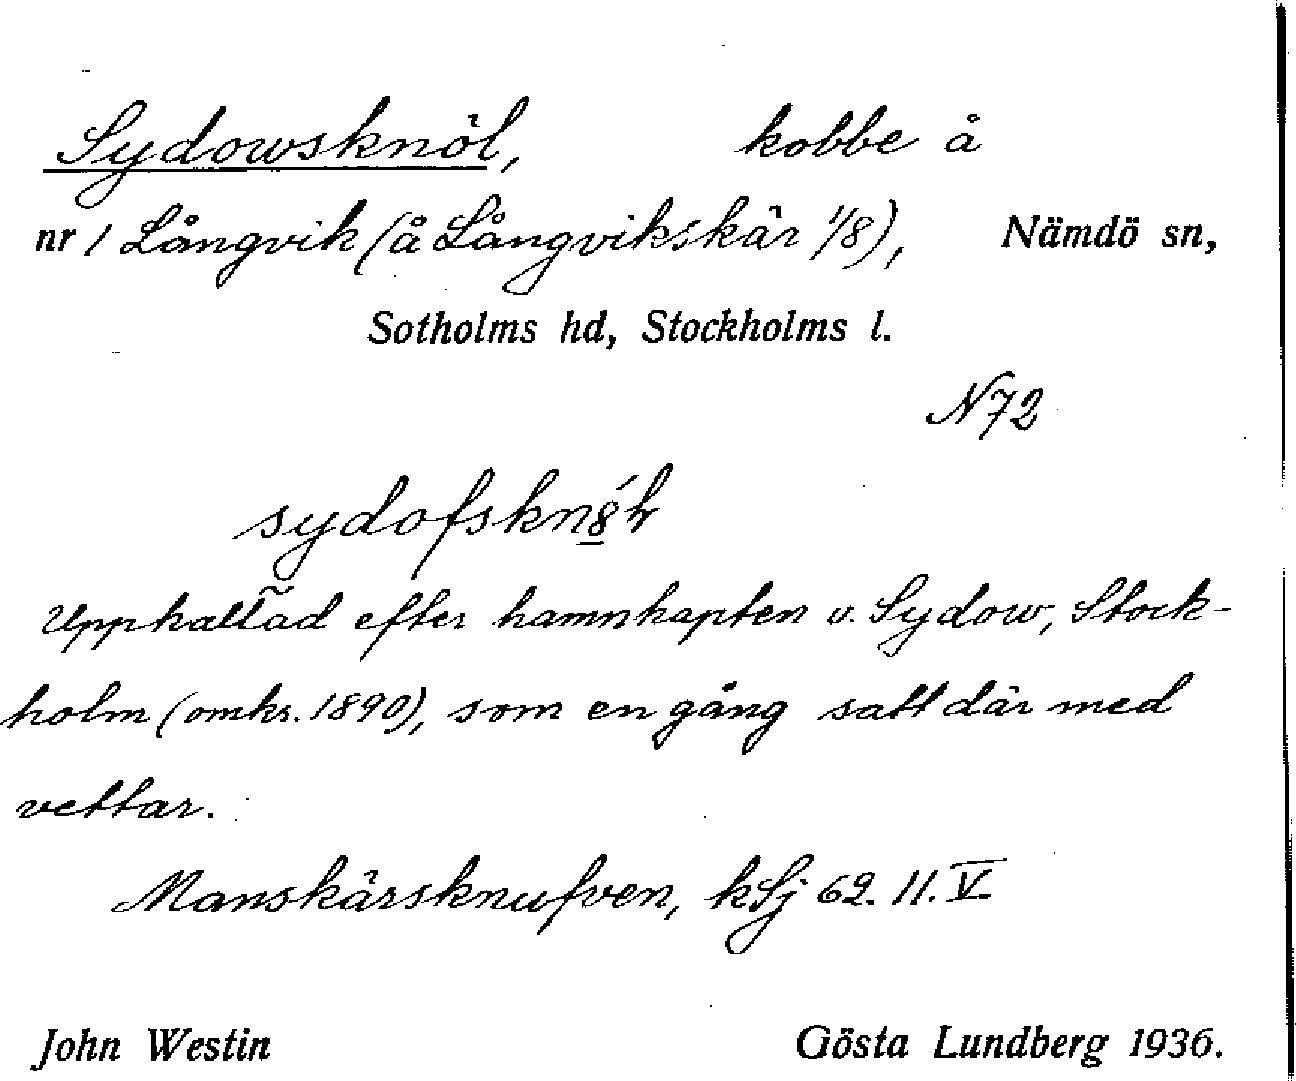 Sydowsknöl, kobbe å
nr 1 Långvik (å Långvikskär 1/8), Nämdö sn,
Sotholms hd, Stockholms l.
N72
sydofskn
Upphallad efter hamnkapten v. Sydow, Stock-
holm (omkr. 1890), som en gång satt där med
vettar.
Manskärsknufven, kSj 62. II. V.
John Westin Gösta Lundberg 1936.